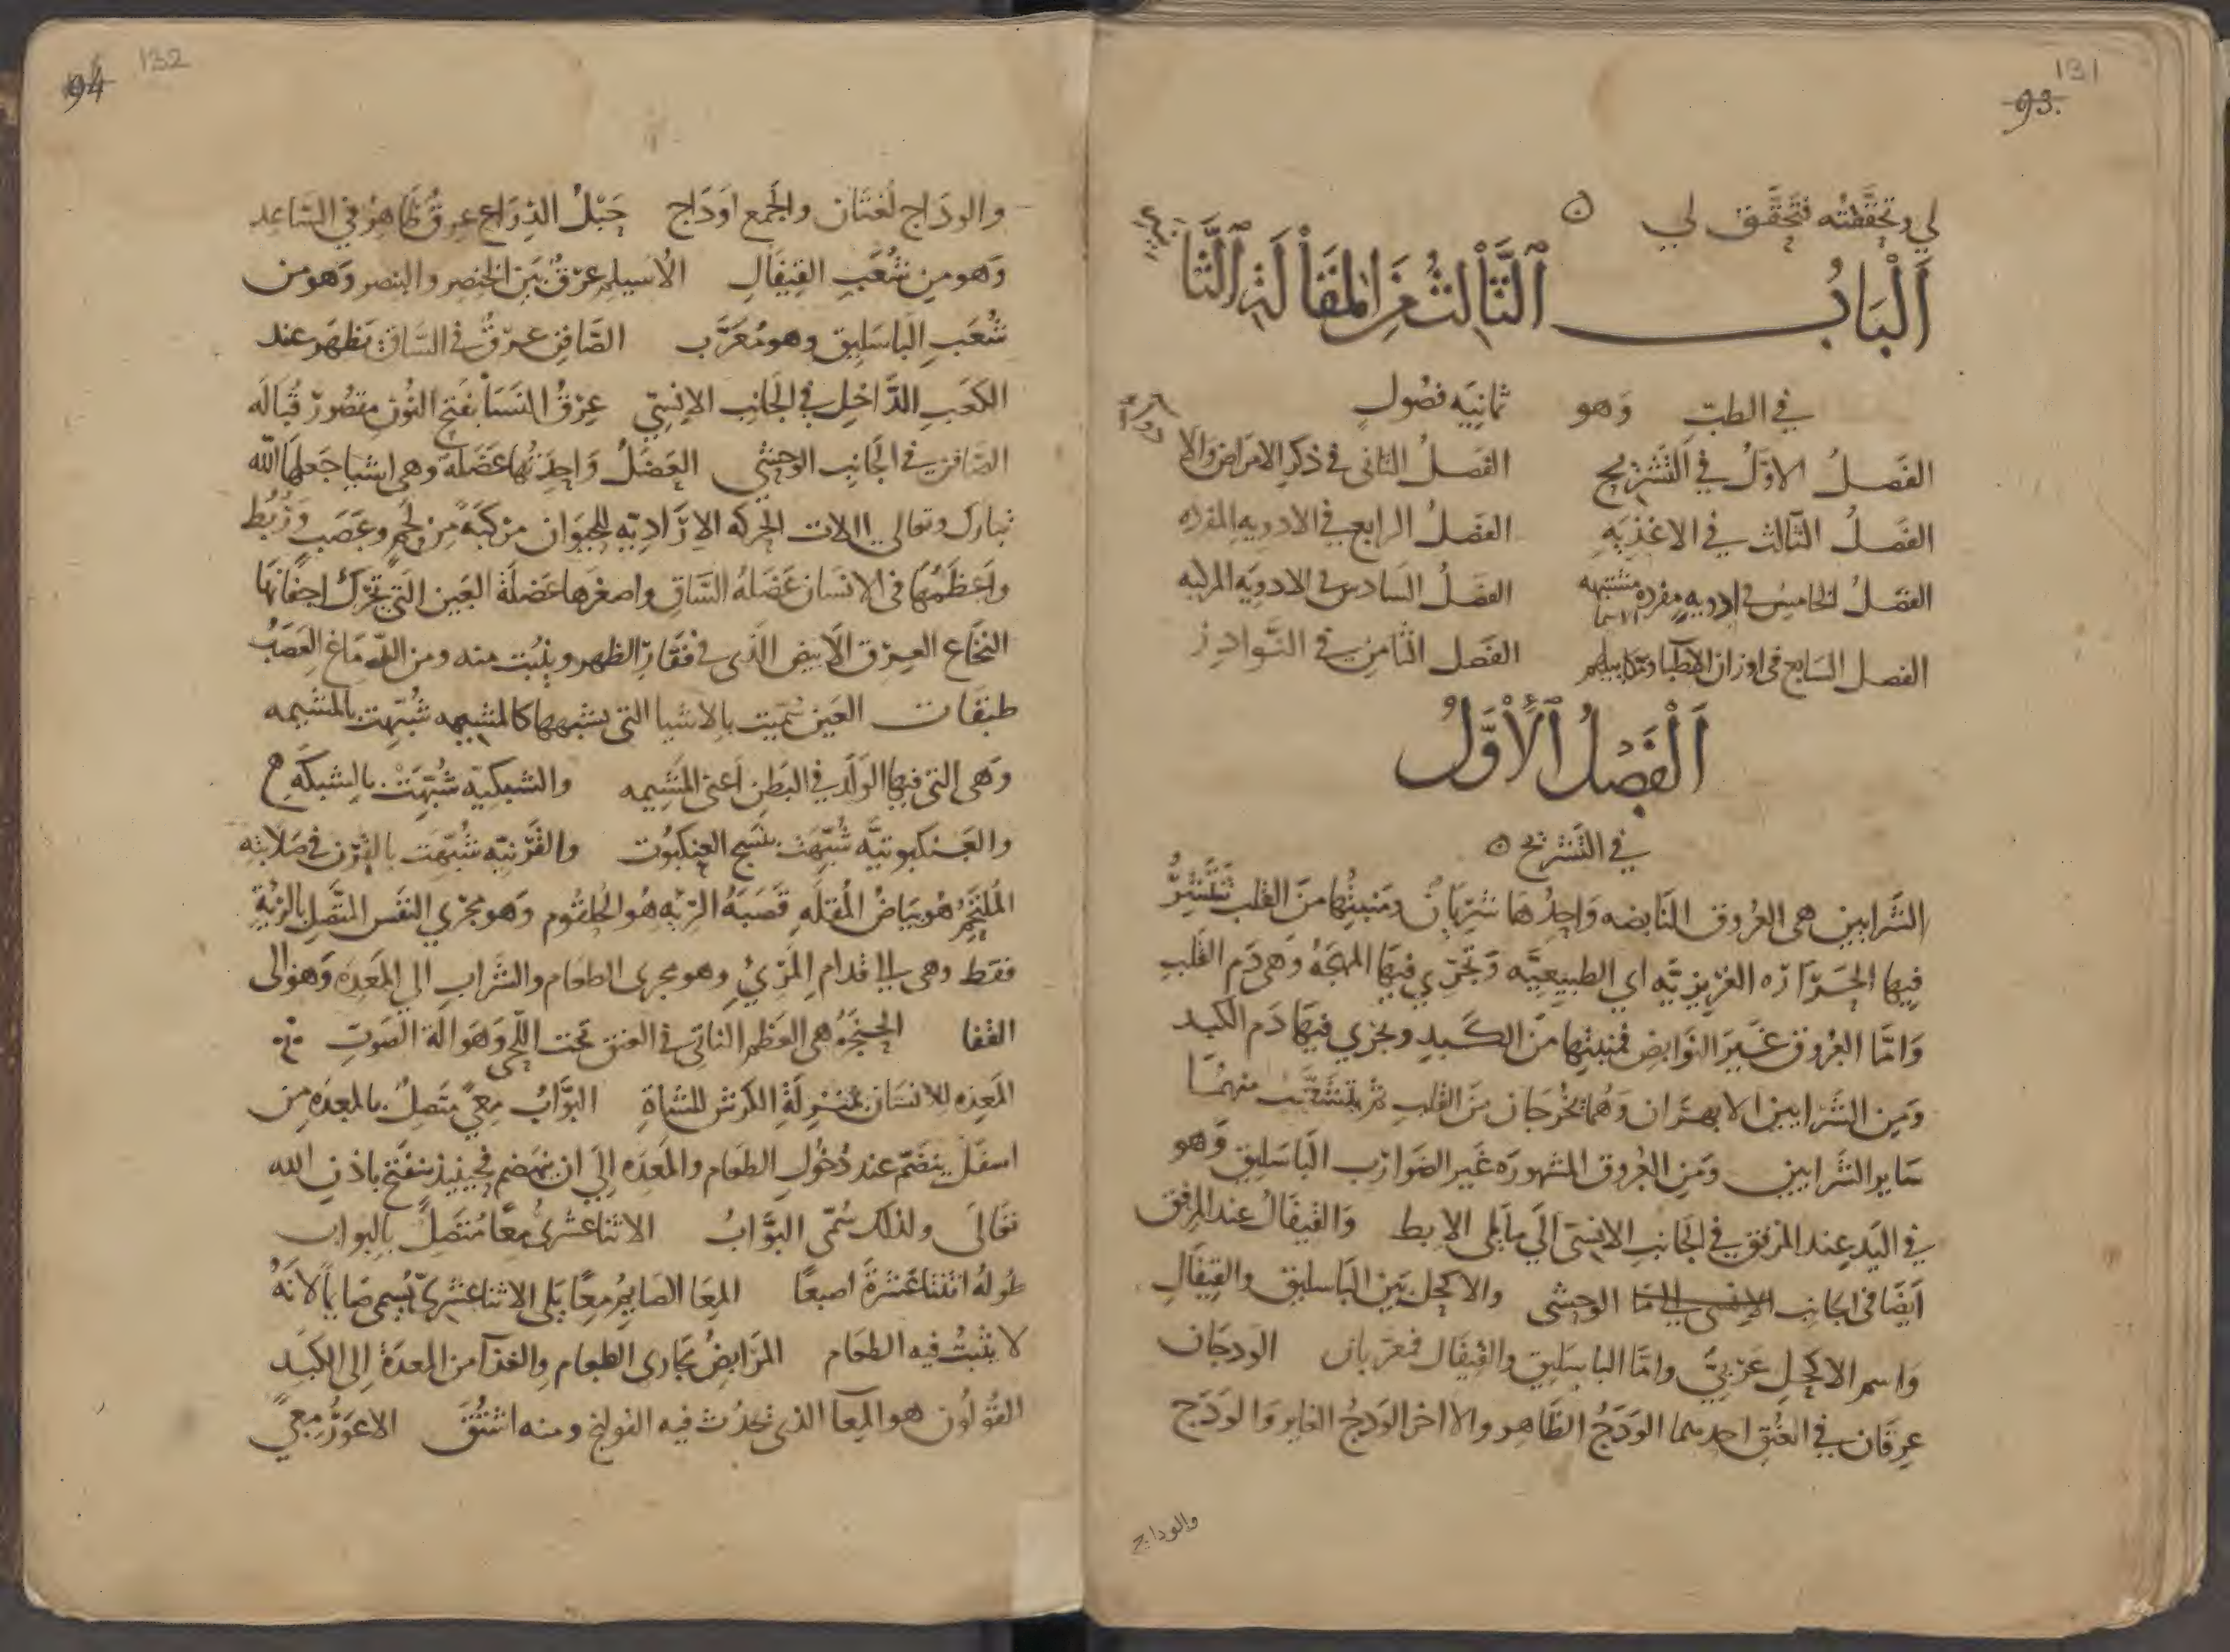 131
93.
لي وتحققته فتحقق لي ن
اَلْبَابُ الثَّالثُ مِنَ المَقَالَةِ الثَّا
نيه
في الطبّ وَهو ثمانيَه فصُولٍ
الفَصلُ الاوّلُ في التَّشْرِيح الفَصلُ الثاني في ذكرِ الامرَاض وَالا
دوآء
الفَصلُ الثّالث في الاغذِيَهِ الفَصلُ الرابع في الادويه المفرده
الفصَلُ الخامِسُ في ادويهٍ مفرده مشتبهه الاسما الفصَلُ السَادس في الادويَه المركبه
الفصل السَابع في اوزان الاطبا ومكاييلهم الفَصل الثّامِن في النَّوادِرِ
اَلْفَصْلُ الْأَوَّلُ
في التَّشريح ن
الشَّرايين هي العُروق النَابضه وَاحِدُهَا شَرِيَانٌ ومَنبتُها منَ القلب تَنْتَشِرُ
فيهَا الحَرَارَه الغَرِيزيَّه اي الطبيعيَّه وَتَجرِي فيهَا المهجَهُ وَهي دَم القَلبِ
وَامَّا العُرُوق غَيرَ النَوابض فمنبتها منَ الكَبدِ ويجري فيهَا دَم الكبد
وَمِن الشَرايين الابهرَان وَهُما يخْرجَان منَ القلبِ ثم يتشَعَّبُ منهُمَا
سَاير الشَّرايين وَمن العُروق المشهورَه غَير الضَوارب البَاسَليق وَهو
في اليَدِ عِند المَرفق في الجَانبِ الانِسي اليَ مَا يلي الاِبط وَالقيفَالُ عند المِرفق
اَيضًا في الجانِب الانسي الى ما الوحشي والاكحل بَين البَاسليق والقِيفَالِ
وَاسم الاكحلِ عَرَبيّ وامّا الباسِليق والقيفَال فمعرّبان الودجَان
عِرقَان في العُنق احدهما الوَدَجُ الظَاهِر والاخر الوَدجُ الغَاير وَالوَدَج
والوداج
132
94
والودَاج لُغتَان والجَمع اَودَاج حَبْلُ الذِرَاع عِرقٌ ظَاهِرٌ في السَاعِد
وَهو من شُعَبِ القِيفَالِ الاُسَيلم عِرقٌ بَين الخنصِر والبنصر وَهو من
شُعَبِ البَاسَليق وهو مُعَرَّب الصَّافِن عِرقٌ في السَّاق يَظهَر عند
الكَعبِ الدَّاخِلِ في الجَانِبِ الاِنِسيّ عِرقُ النَسَا بفَتحِ النُونِ مقصُورٌ قُبَالَه
الصَّافِن في الجَانبِ الوحشي العَضَلُ وَاحِدَتُها عَضَلَة وَهي اشيا جَعلَها الله
تبارك وتعالى الات الحَركَه الاِرَاديّه للحيَوَان مركَبَةً مِن لَحمٍ وعَصَبٍ وَرُبُط
واَعظَمُهَا في الانسَان عَضَلةُ السَّاقِ واصغرَها عَضلَة العَين التَي تُحَرّك اجفَانَها
النخَاع العِرق الاَبيض الذَي في فقَارِ الظهر وينُبت منه ومن الدِّمَاغ العَصَبُ
طبقَات العَين سُمّيت بالاشيا التي يشبهها كالمشيمه شُبِّهت بالمشِيمه
وَهي التَي فيهَا الوَلَد في البَطنِ اَعني المَشِيمه والشبكيّه شُبِّهَت بالشبكَهِ
والعَنكبوتيَّه شُبِّهَت بنَسج العنكَبُوت والقَرْنيّه شبِّهَت بالقَرن في صَلابته
المُلتَحِمُ هُو بَياضُ المُقلَه قَصَبَةُ الرِيَه هُو الحُلقُوم وَهو مجرَي النفَس المتَّصِل بالرِيَة
فقط وهي الى قدام المَرِيِء وهو مجرى الطعَام والشَّرابِ الي المَعدَه وَهو الى
القفا الحَنجَرَهُ هي العَظم الناتِي في العنق تحت اللَحي وَهَو الَة الصَوتِ
المَعِده للانسَان بمنزلَةِ الكرش للشَاةِ البَوَّابُ مِعىً متّصلٌ بالمعدَه مِن
اسفَلُ ينضَمّ عند دُخُولِ الطعَام والمَعدَه اِليَ ان ينهَضم فحينيذ ينفَتح باذنِ الله
تعَالَى ولذلك سُمّي البَوَّابُ الاثنا عشرِيُ مِعًا مُتصَلٌ بالبواب
طُولهُ اثنتا عَشرَةَ اصبعًا المِعَا الصَايِمُ مِعًا يَلي الاثنا عَشَريّ يُسمى صَايماً لاَنَهُ
لا يثبُت فيه الطعَام المَرَابِضُ مَجَاري الطعَام والغذَآ من المعدَة اِلى الكَبد
القُولُون هو المِعَا الذي يحدُث فيه القولنج ومنه اشتُقَّ الاعوَرُ مِعيً